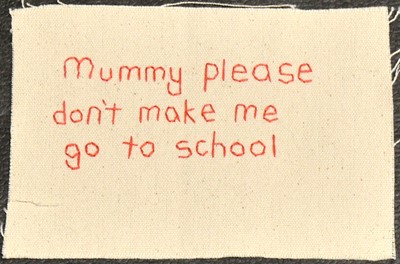 Mummy please
don't make me
go to school